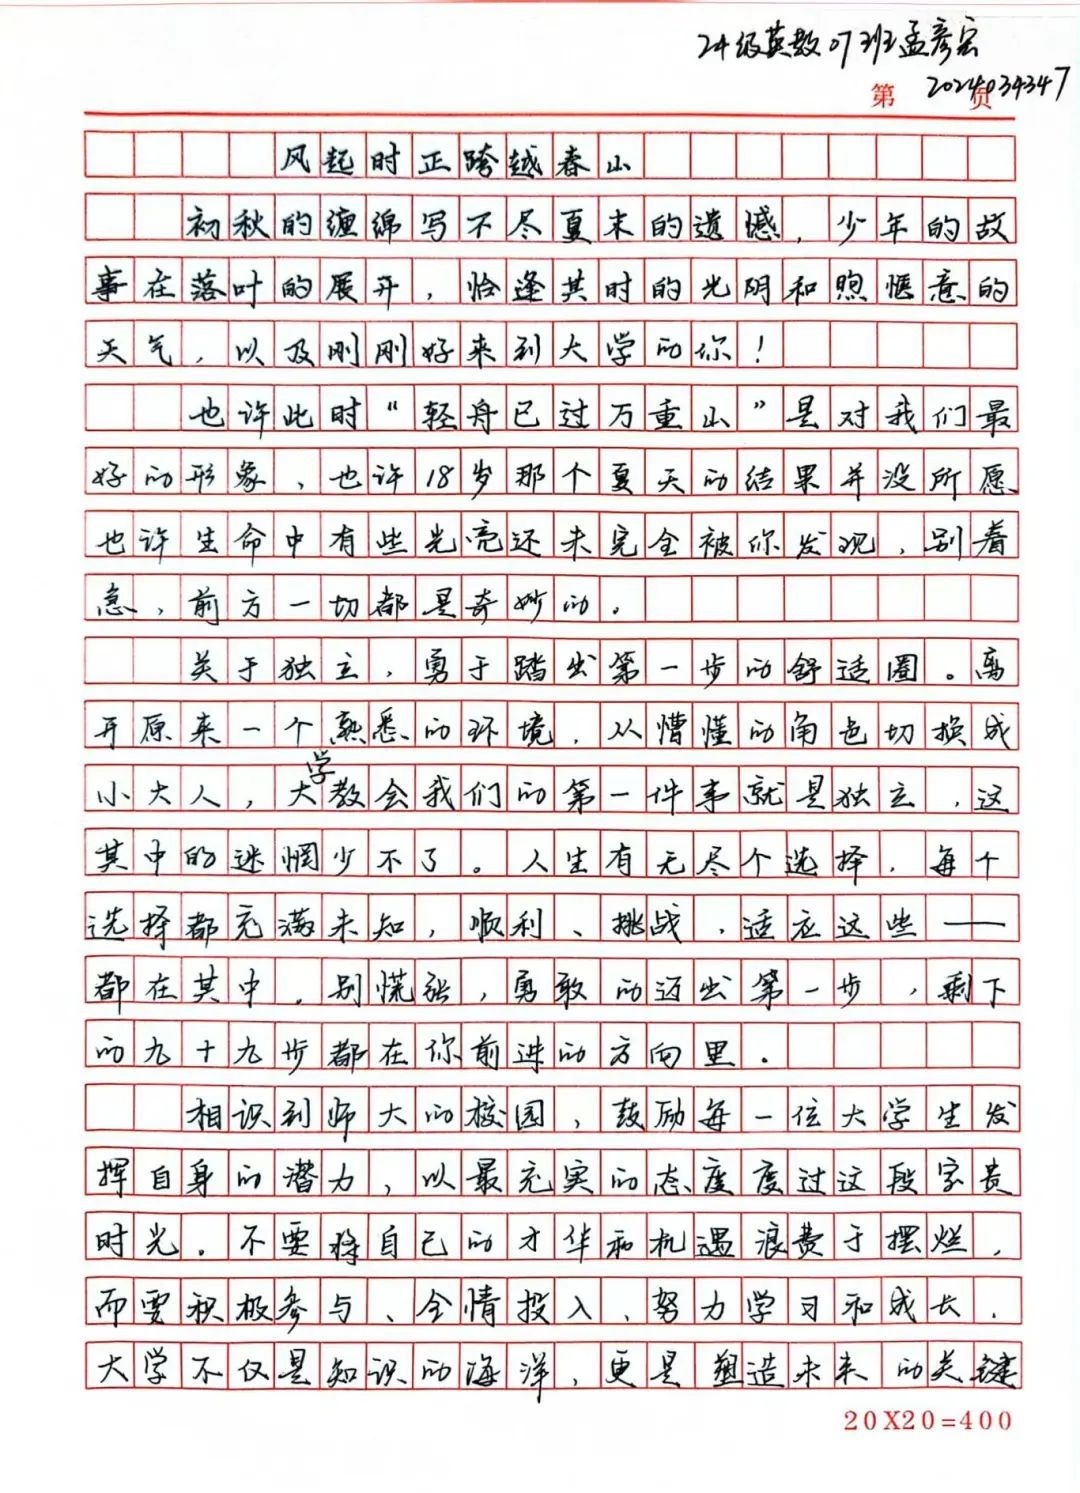 24级英教07班孟彦宏
第 页 2024034347
风起时正跨越春山
初秋的缠绵写不尽夏末的遗憾，少年的故
事在落叶的展开，恰逢其时的光阴和煦惬意的
天气，以及刚刚好来到大学的你！
也许此时“轻舟已过万重山”是对我们最
好的形象，也许18岁那个夏天的结果并没所愿
也许生命中有些光亮还未完全被你发现，别着
急，前方一切都是奇妙的。
关于独立，勇于踏出第一步的舒适圈。离
开原来一个熟悉的环境，从懵懂的角色切换成
小大人，大学教会我们的第一件事就是独立，这
其中的迷惘少不了。人生有无尽个选择，每个
选择都充满未知，顺利、挑战，适应这些——
都在其中，别慌张，勇敢的迈出第一步，剩下
的九十九步都在你前进的方向里。
相识到师大的校园，鼓励每一位大学生发
挥自身的潜力，以最充实的态度度过这段宝贵
时光。不要将自己的才华和机遇浪费于摆烂，
而要积极参与、全情投入、努力学习和成长，
大学不仅是知识的海洋，更是塑造未来的关键
20X20=400